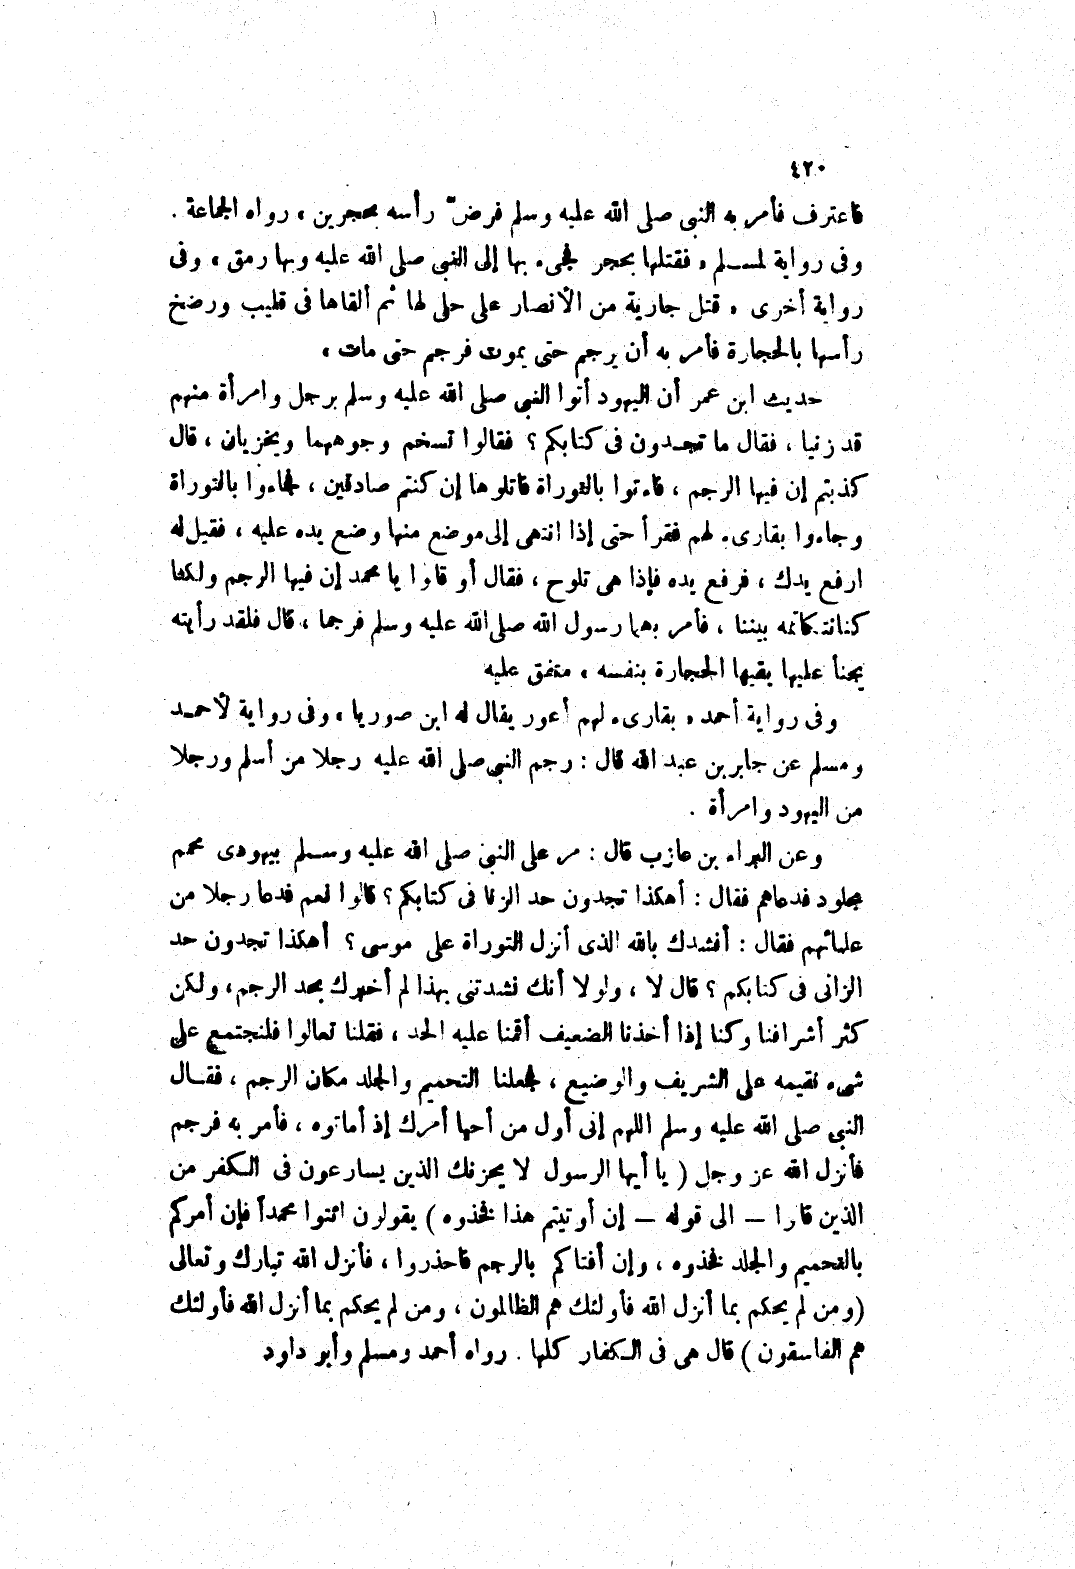 ٤٢٠
فاعترف فأمر به النبى صلى الله عليه وسلم فرضّ رأسه بحجرين ، رواه الجماعة .
وفى رواية لمسلم ، فقتلها بحجر فجىء بها إلى النبى صلى الله عليه وبها رمق ، وفى
رواية أخرى ، قتل جارية من الأنصار على حلى لها ثم ألقاها فى قليب ورضخ
رأسها بالحجارة فأمر به أن يرجم حتى يموت فرجم حتى مات ،
حديث ابن عمر أن اليهود أتوا النبى صلى الله عليه وسلم برجل وامرأة منهم
قد زنيا ، فقال ما تجدون فى كتابكم ؟ فقالوا تسخم وجوههما ويخزيان ، قال
كذبتم إن فيها الرجم ، فاءتوا بالتوراة فاتلوها إن كنتم صادقين ، فجاءوا بالتوراة
وجاءوا بقارىء لهم فقرأ حتى إذا انتهى إلى موضع منها وضع يده عليه ، فقيل له
ارفع يدك ، فرفع يده فإذا هى تلوح ، فقال أو قالوا يا محمد إن فيها الرجم ولكنا
كنا نتكاتمه بيننا ، فأمر بهما رسول الله صلى الله عليه وسلم فرجما ، قال فلقد رأيته
يجنأ عليها يقيها الحجارة بنفسه ، متفق عليه
وفى رواية أحمد ، بقارىء لهم أعور يقال له ابن صوريا ، وفى رواية لأحمد
ومسلم عن جابر بن عبد الله قال : رجم النبى صلى الله عليه رجلا من أسلم ورجلا
من اليهود وامرأة .
وعن البراء بن عازب قال : مر على النبى صلى الله عليه وسلم بيهودى محمم
مجلود فدعاهم فقال : أهكذا تجدون حد الزنا فى كتابكم ؟ قالوا نعم فدعا رجلا من
علمائهم فقال : أنشدك بالله الذى أنزل التوراة على موسى ؟ أهكذا تجدون حد
الزانى فى كتابكم ؟ قال لا ، ولولا أنك نشدتنى بهذا لم أخبرك بحد الرجم ، ولكن
كثر أشرافنا وكنا إذا أخذنا الضعيف أقمنا عليه الحد ، فقلنا تعالوا فلنجتمع على
شىء نقيمه على الشريف والوضيع ، فجعلنا التحميم والجلد مكان الرجم ، فقال
النبى صلى الله عليه وسلم اللهم إنى أول من أحيا أمرك إذ أماتوه ، فأمر به فرجم
فأنزل الله عز وجل ( يا أيها الرسول لا يحزنك الذين يسارعون فى الكفر من
الذين قالوا – الى قوله – إن أوتيتم هذا فخذوه ) يقولون ائتوا محمداً فإن أمركم
بالتحميم والجلد فخذوه ، وإن أفتاكم بالرجم فاحذروا ، فأنزل الله تبارك وتعالى
( ومن لم يحكم بما أنزل الله فأولئك هم الظالمون ، ومن لم يحكم بما أنزل الله فأولئك
هم الفاسقون ) قال هى فى الكفار كلها . رواه أحمد ومسلم وأبو داود